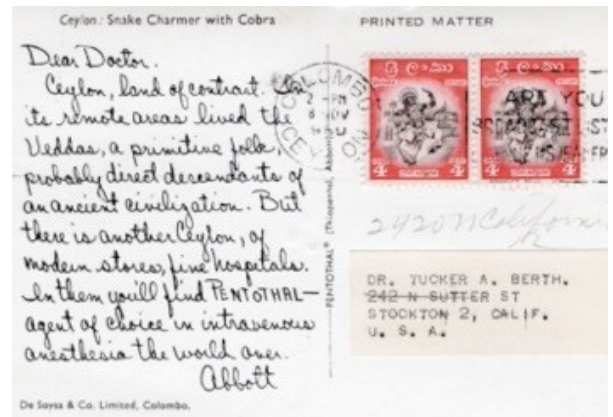 Ceylon: Snake Charmer with Cobra
Dear Doctor.
Ceylon, land of contrast. In
its remote areas lived the
Veddas, a primitive folk,
probably direct descendants of
an ancient civilization. But
there is another Ceylon, of
modern stores, fine hospitals.
In them you'll find PENTOTHAL—
agent of choice in intravenous
anesthesia the world over.
Abbott
De Soysa & Co. Limited, Colombo.
PENTOTHAL® (Thiopental, Abbott)
PRINTED MATTER
COLOMBO
2 - PM
8 NOV
CEYLON
ARE YOU
ශ්‍රී ලංකා
4
4
2420 N California
DR. TUCKER A. BERTH.
242 N SUTTER ST
STOCKTON 2, CALIF.
U. S. A.